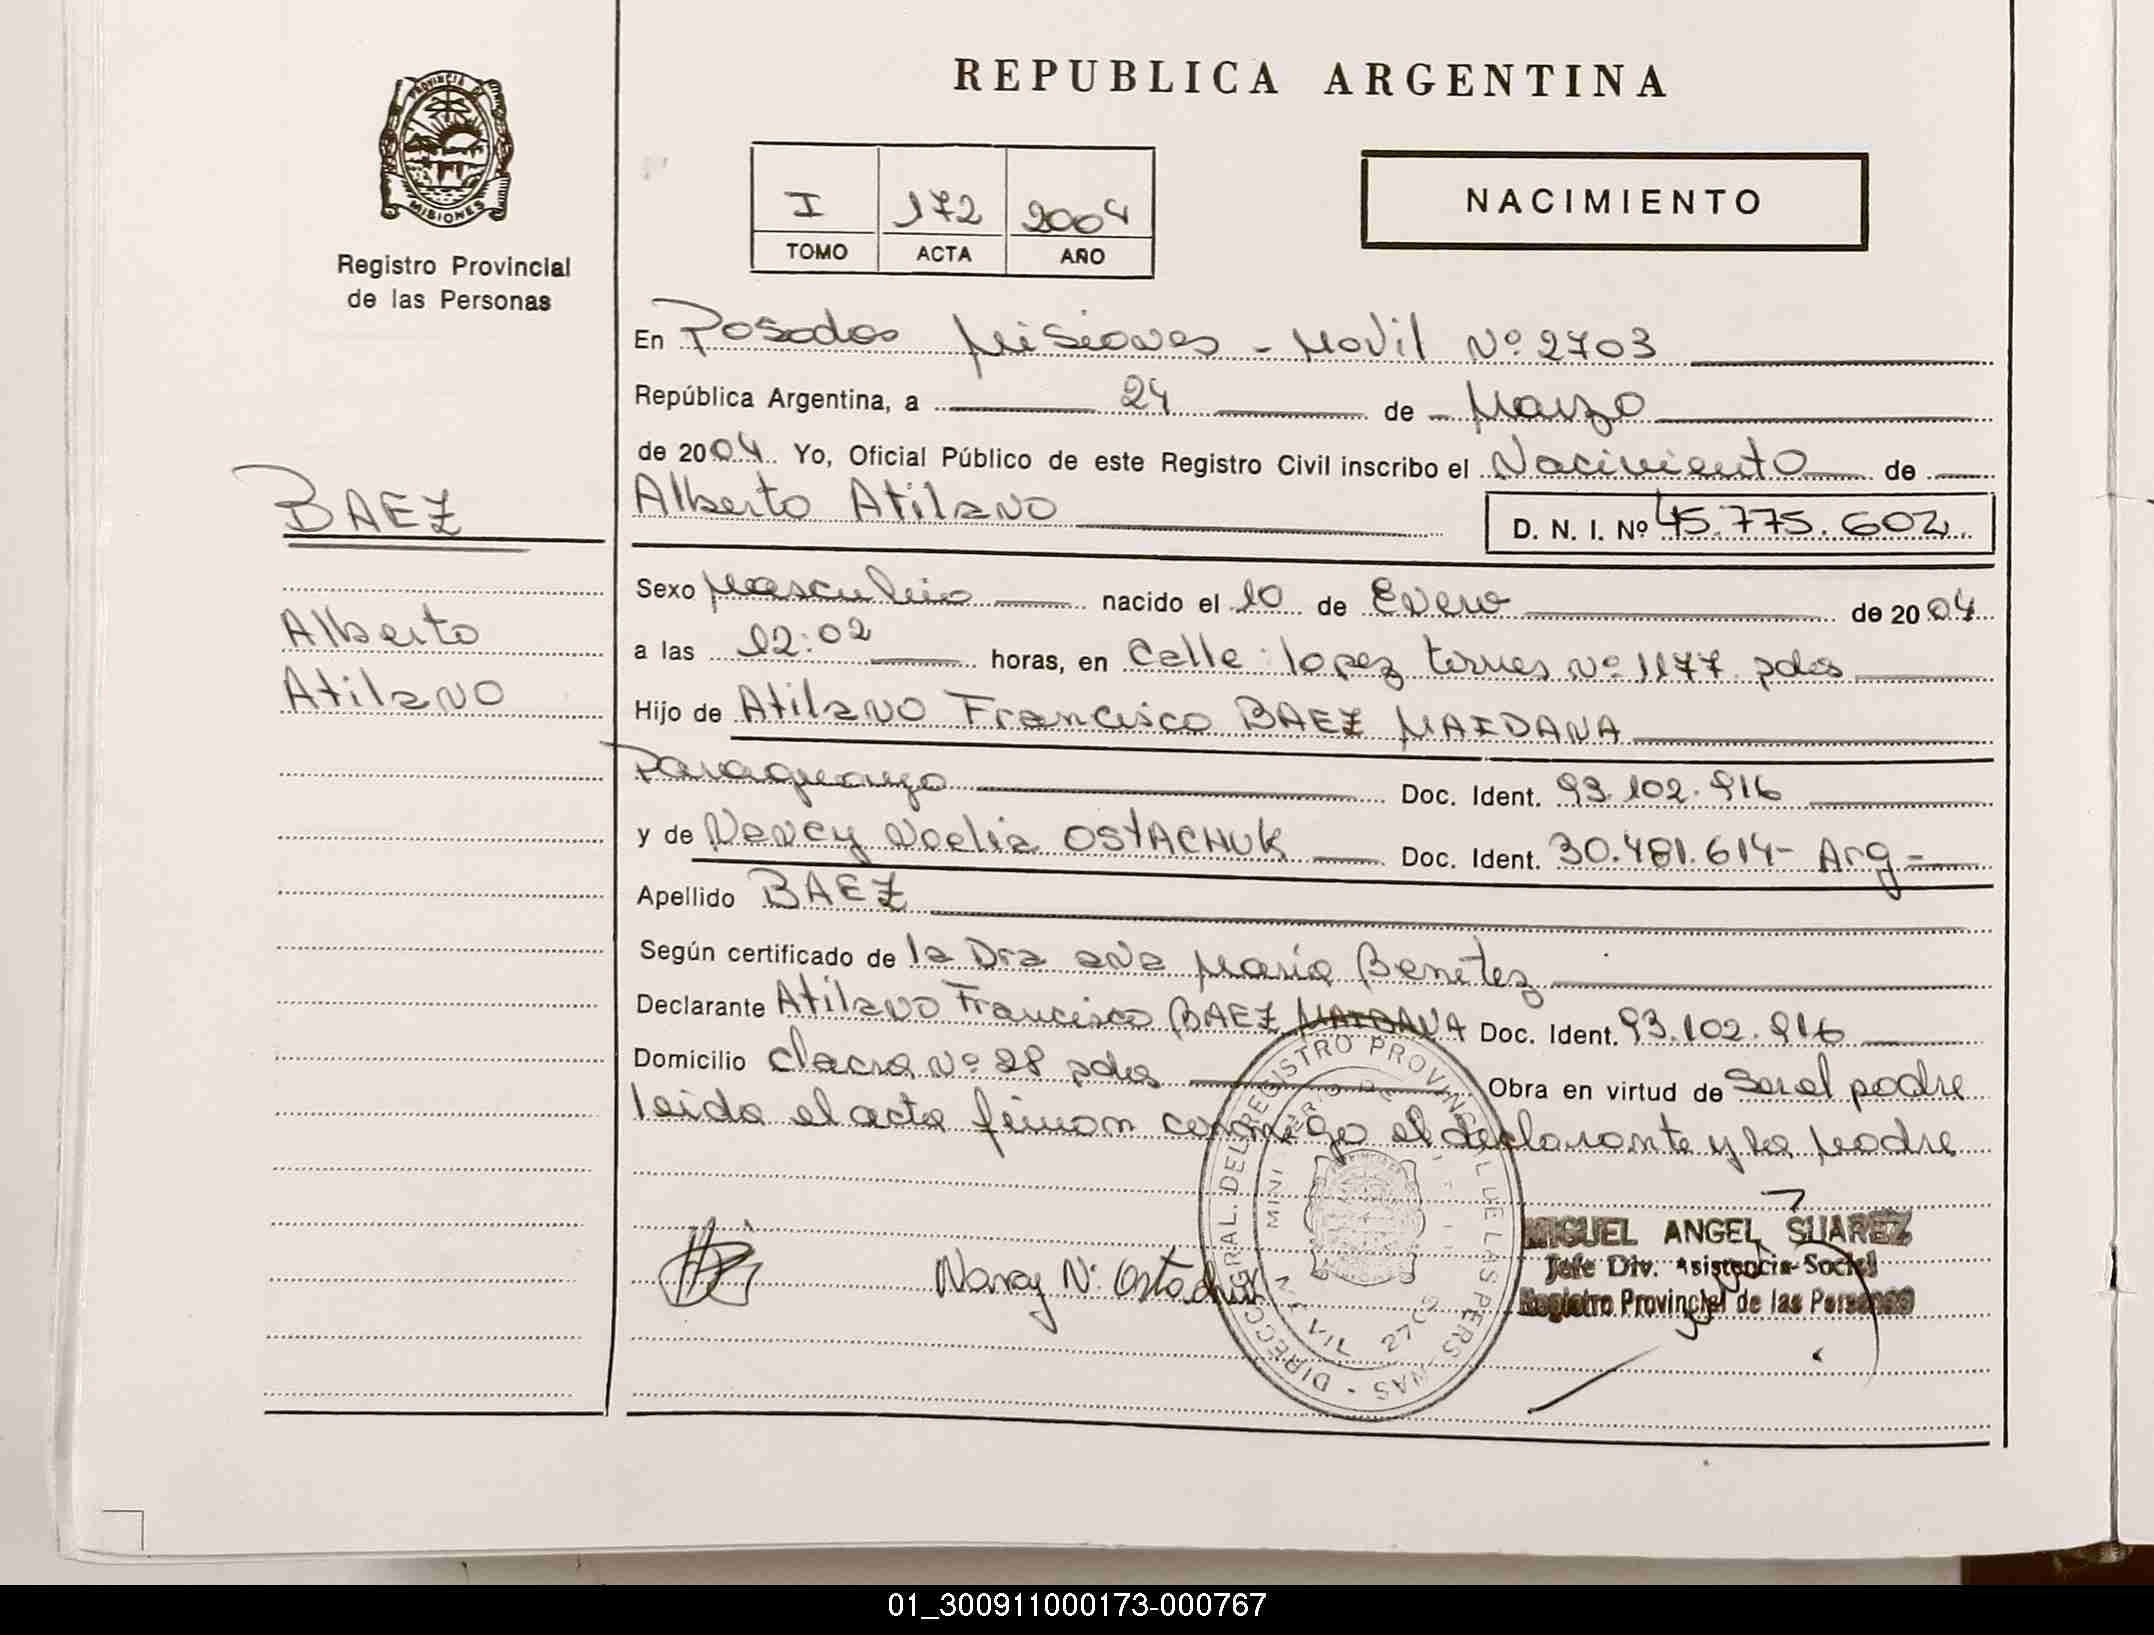 REPUBLICA ARGENTINA
PROVINCIA DE
MISIONES
Registro Provincial
de las Personas
I 172 2004
TOMO ACTA AÑO
NACIMIENTO
En Posadas Misiones - Movil Nº 2703
República Argentina, a 24 de Marzo
de 2004 Yo, Oficial Público de este Registro Civil inscribo el Nacimiento de
Alberto Atilano D. N. I. Nº 45.775.602
BAEZ
Alberto
Atilano
Sexo Masculino nacido el 10 de Enero de 2004
a las 12:02 horas, en Calle: lopez torres Nº 1177 pdas
Hijo de Atilano Francisco BAEZ MAIDANA
Paraguayo Doc. Ident. 93.102.916
y de Nancy Noelia OSTACHUK Doc. Ident. 30.481.614- Arg=
Apellido BAEZ
Según certificado de la Dra ana Maria Benitez
Declarante Atilano Francisco BAEZ MAIDANA Doc. Ident. 93.102.916
Domicilio chacra Nº 28 pdas Obra en virtud de ser el padre
leida el acta firman conmigo el declarante y la Madre
Nancy N. Ostachuk
DIRECC. GRAL. DEL REGISTRO PROVINCIAL DE LAS PERSONAS
MIGUEL ANGEL SUAREZ
Jefe Div. Asistencia Social
Registro Provincial de las Personas
01_300911000173-000767